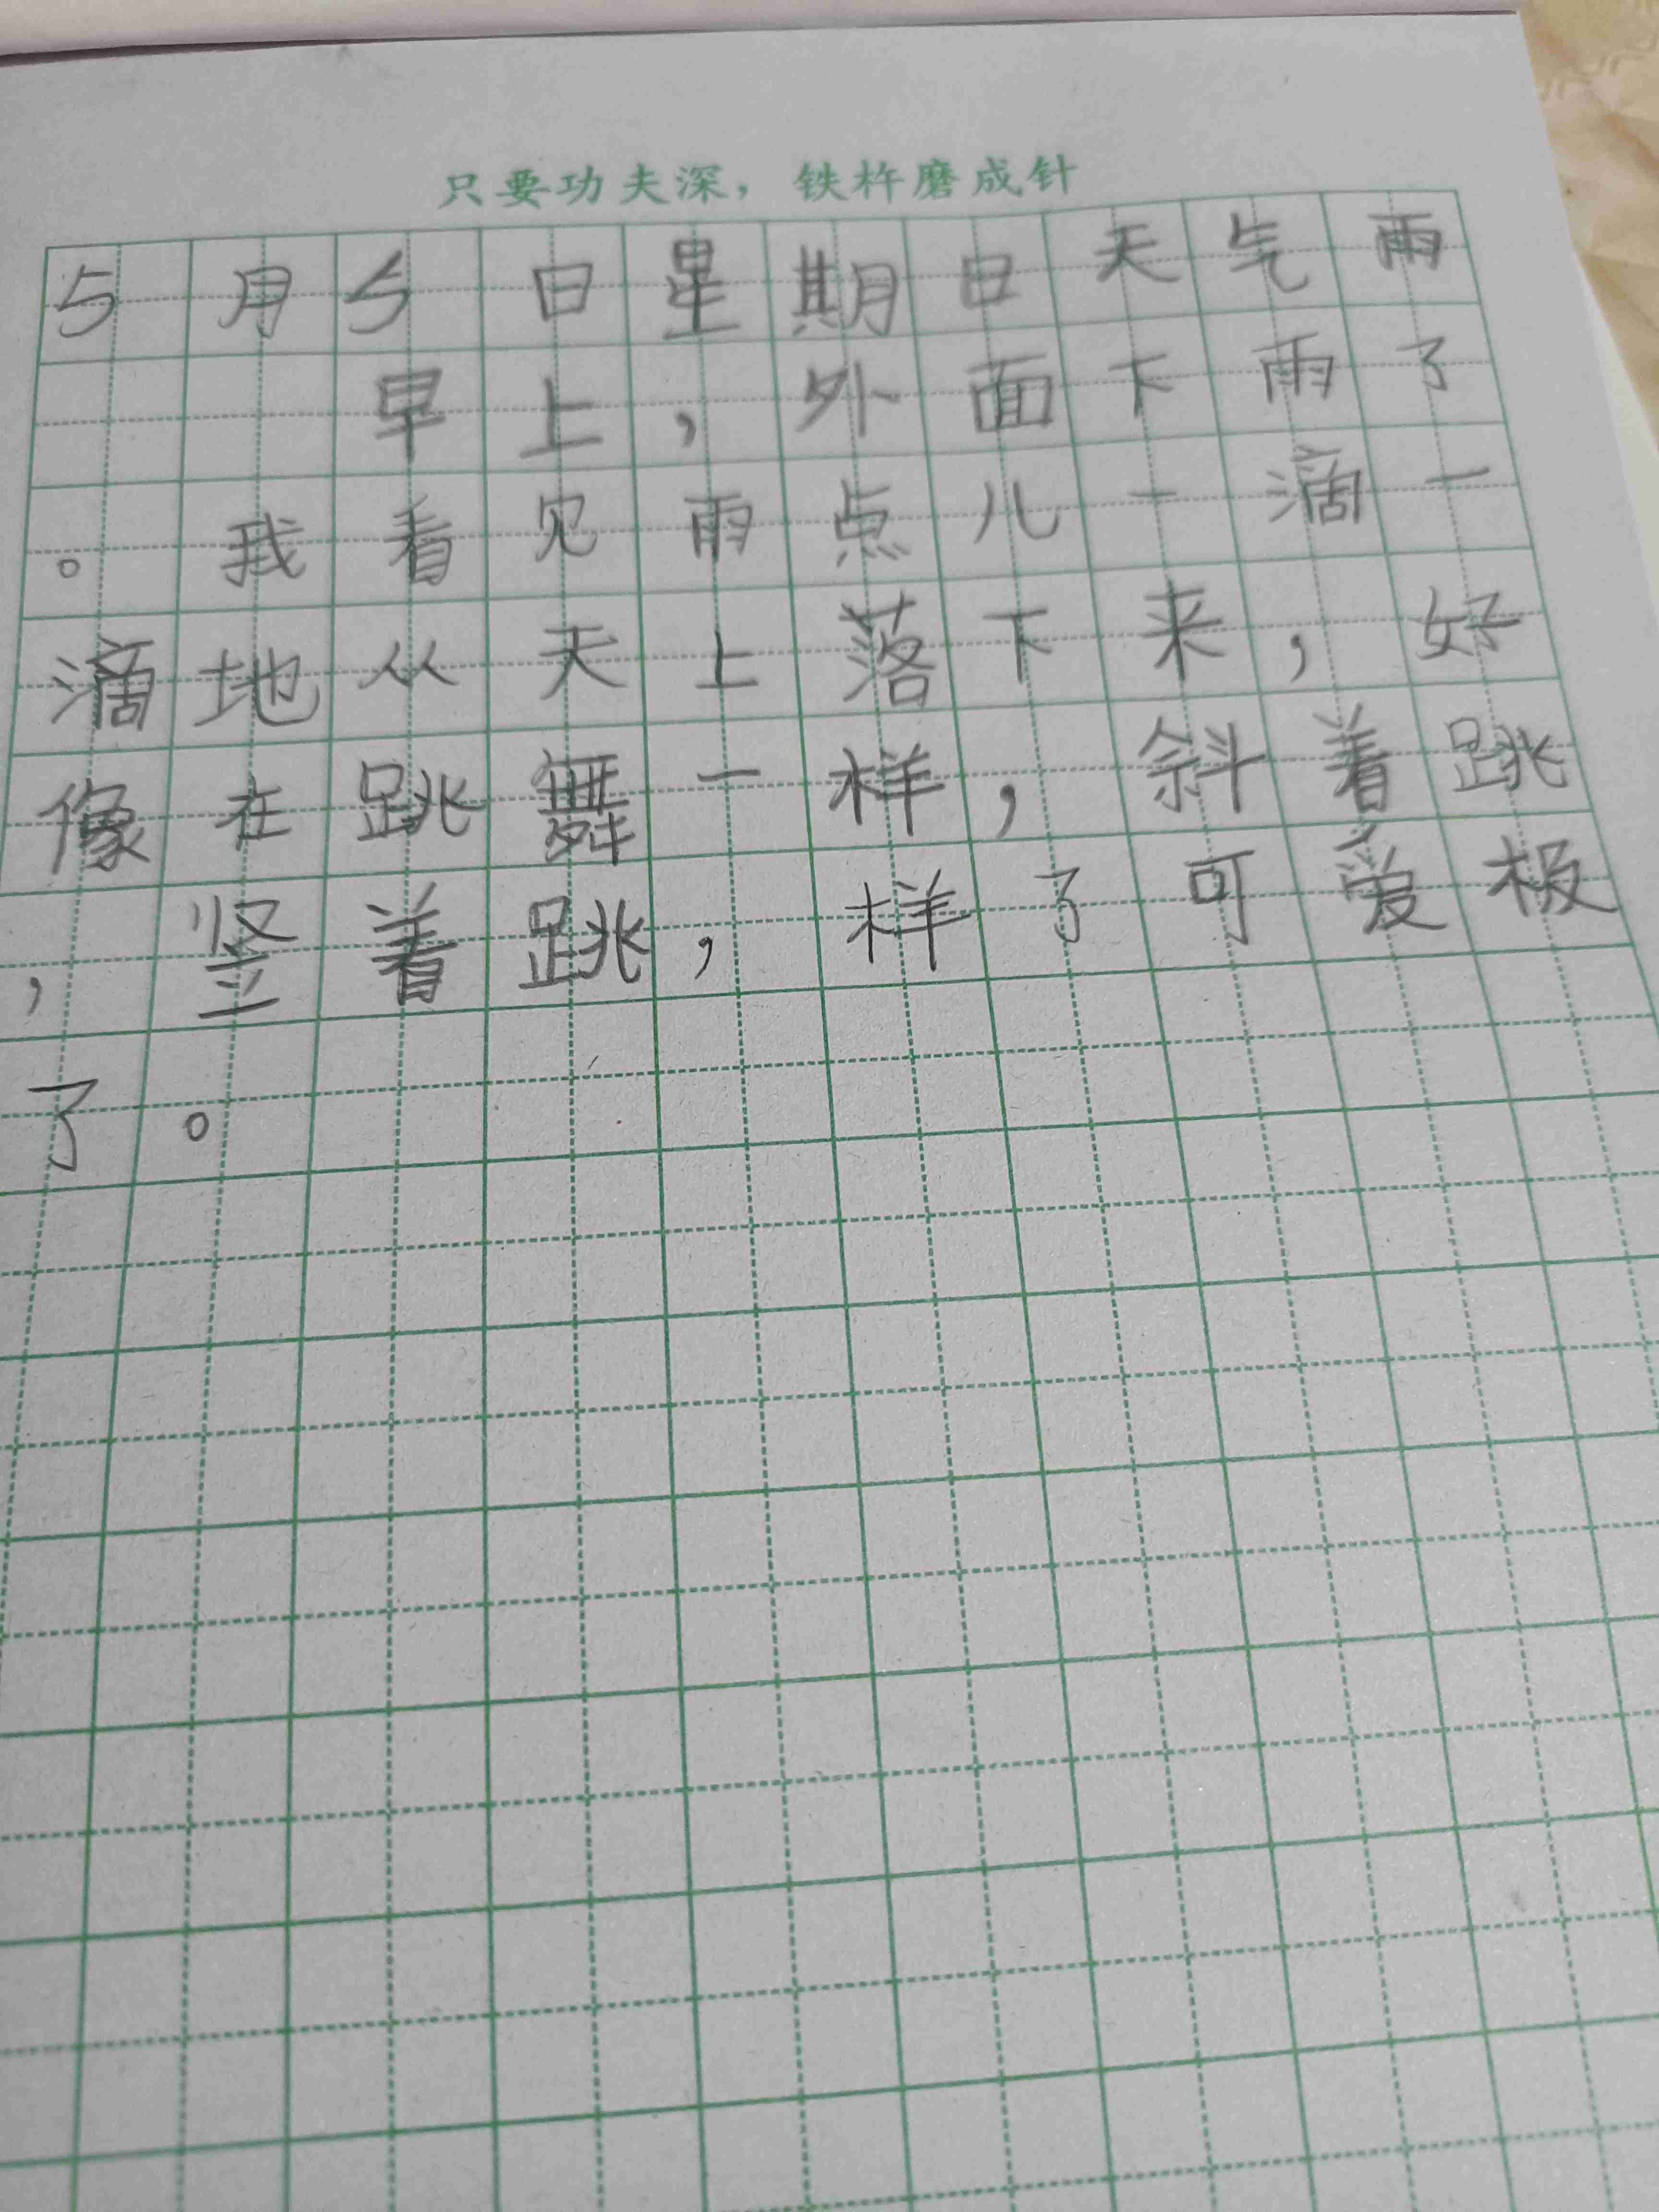 只要功夫深，铁杵磨成针
5月5日星期日天气雨
早上，外面下雨了
。我看见雨点儿一滴一
滴地从天上落下来，好
像在跳舞一样，斜着跳
，竖着跳，样了可爱极
了。